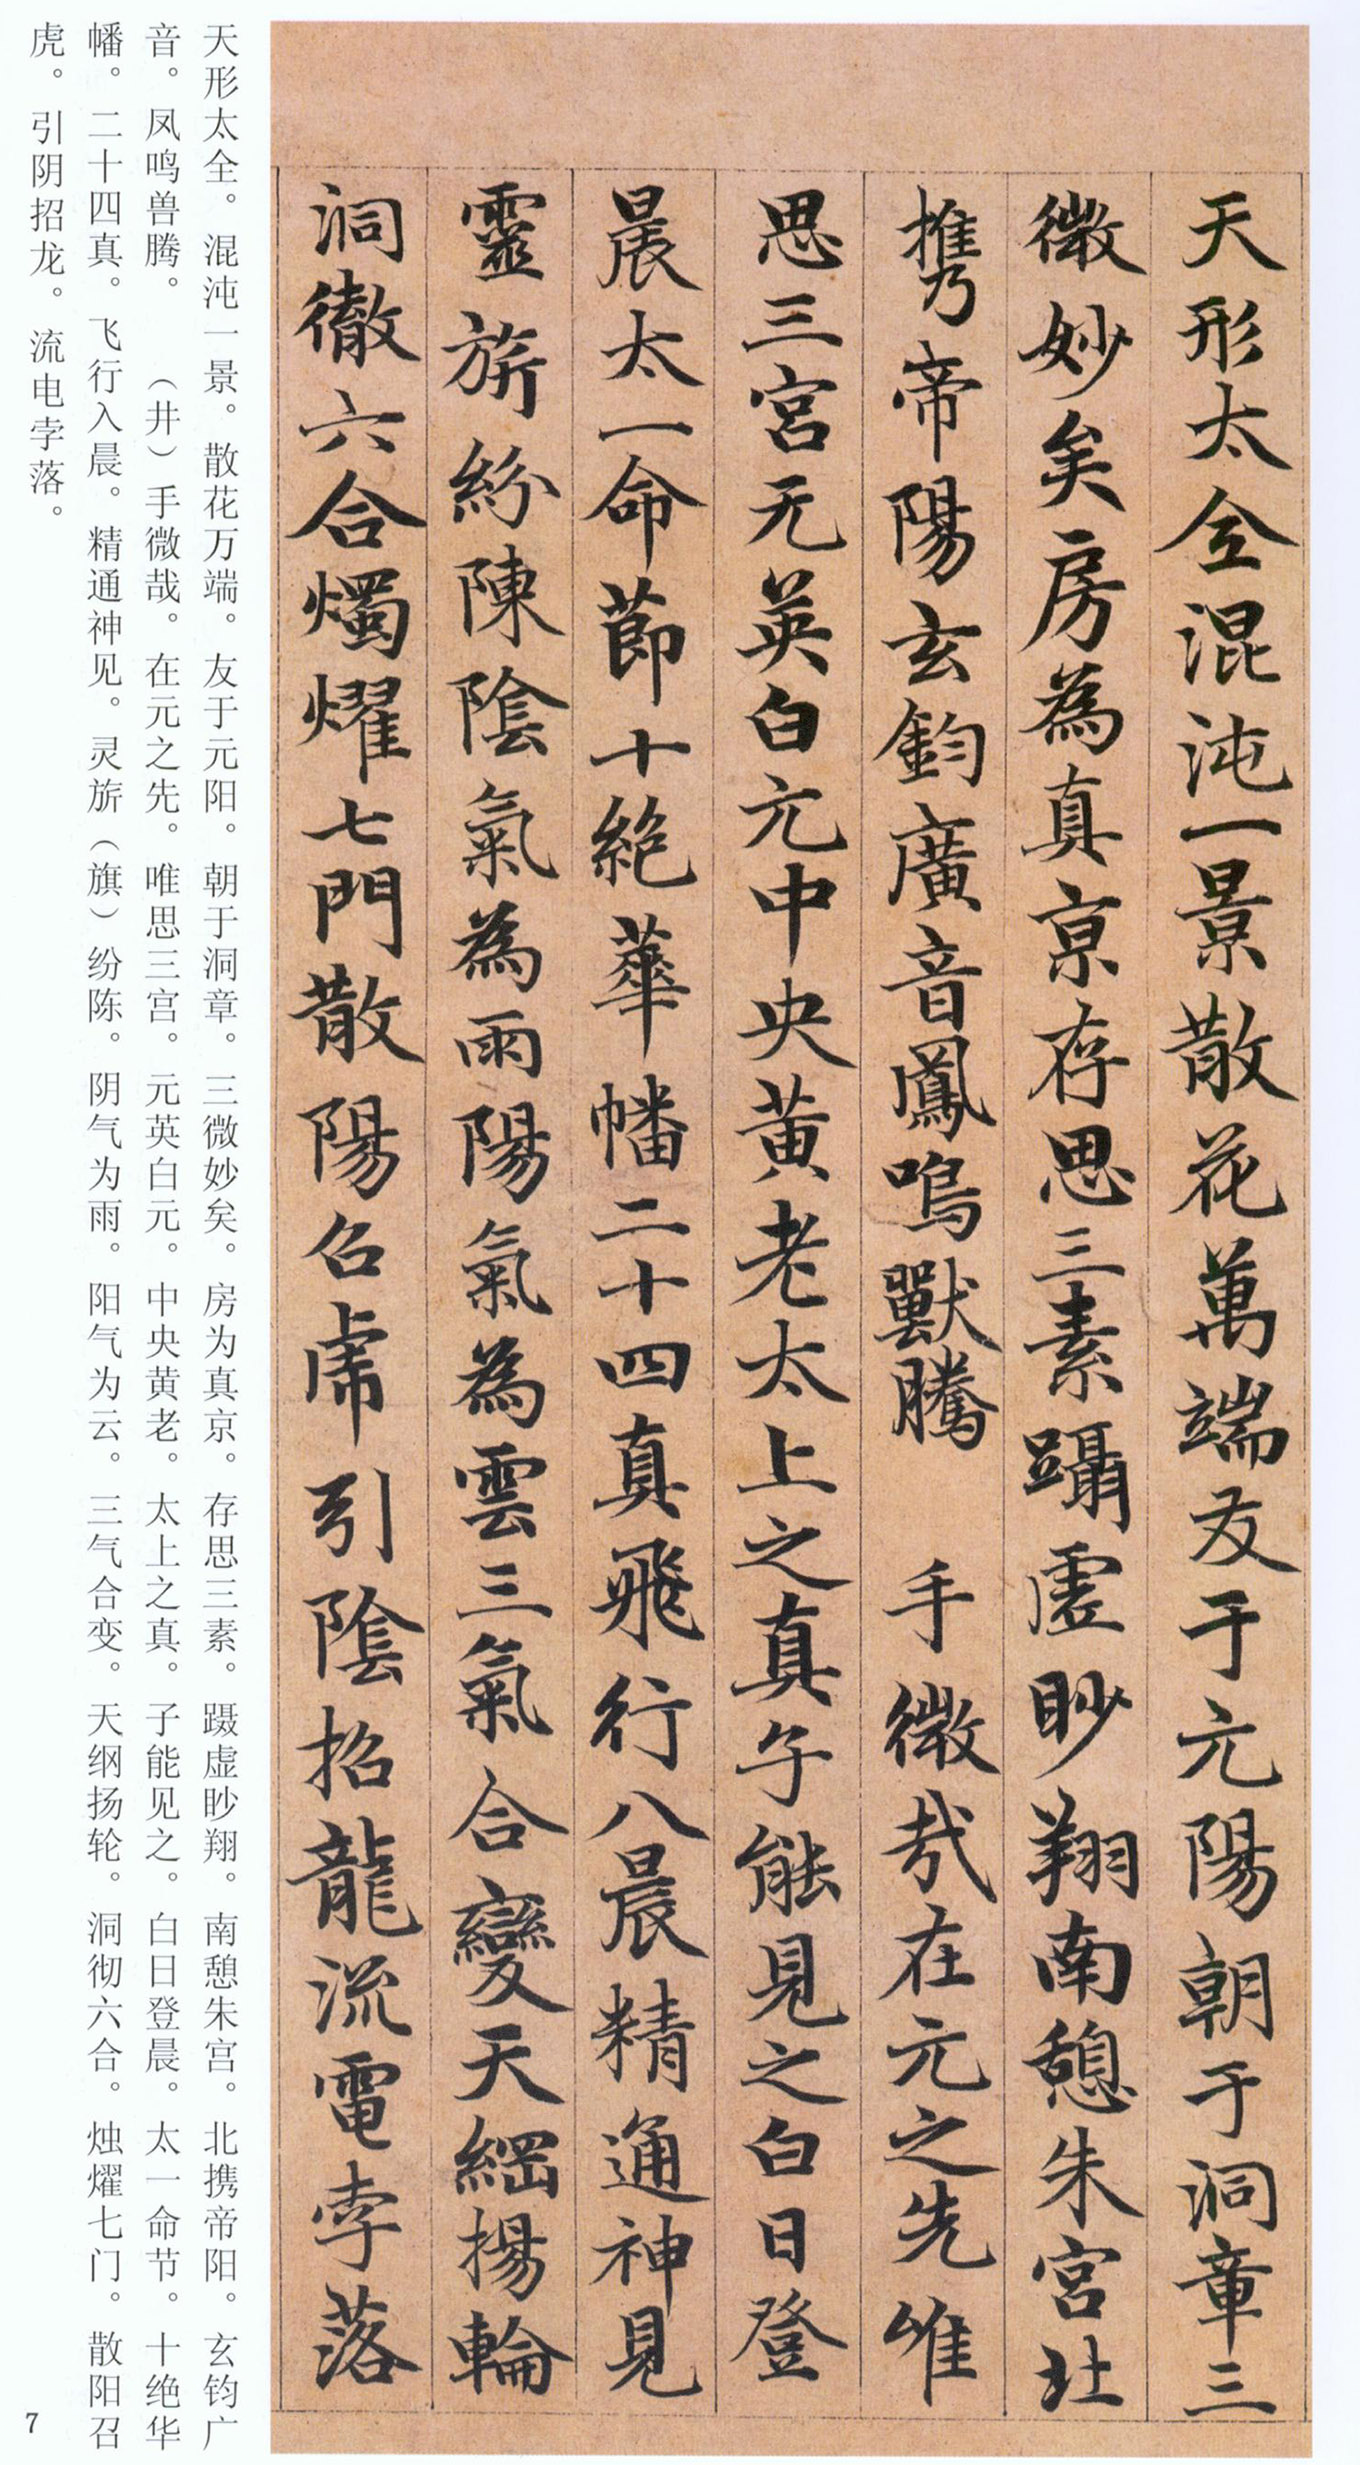 天形太全混沌一景散花萬端友于元陽朝于洞章三
微妙矣房為真京存思三素躡虛眇翔南憩朱宮北
攜帝陽玄鈞廣音鳳鳴獸騰 手微哉在元之先唯
思三宮无英白元中央黃老太上之真子能見之白日登
晨太一命節十絕華幡二十四真飛行八晨精通神見
靈旂紛陳陰氣為雨陽氣為雲三氣合變天綱揚輪
洞徹六合燭燿七門散陽召虎引陰招龍流電孛落
天形太全。混沌一景。散花万端。友于元阳。朝于洞章。三微妙矣。房为真京。存思三素。蹑虚眇翔。南憩朱宫。北携帝阳。玄钧广
音。凤鸣兽腾。 （井）手微哉。在元之先。唯思三宫。元英白元。中央黄老。太上之真。子能见之。白日登晨。太一命节。十绝华
幡。二十四真。飞行入晨。精通神见。灵旂（旗）纷陈。阴气为雨。阳气为云。三气合变。天纲扬轮。洞彻六合。烛燿七门。散阳召
虎。引阴招龙。流电孛落。
7